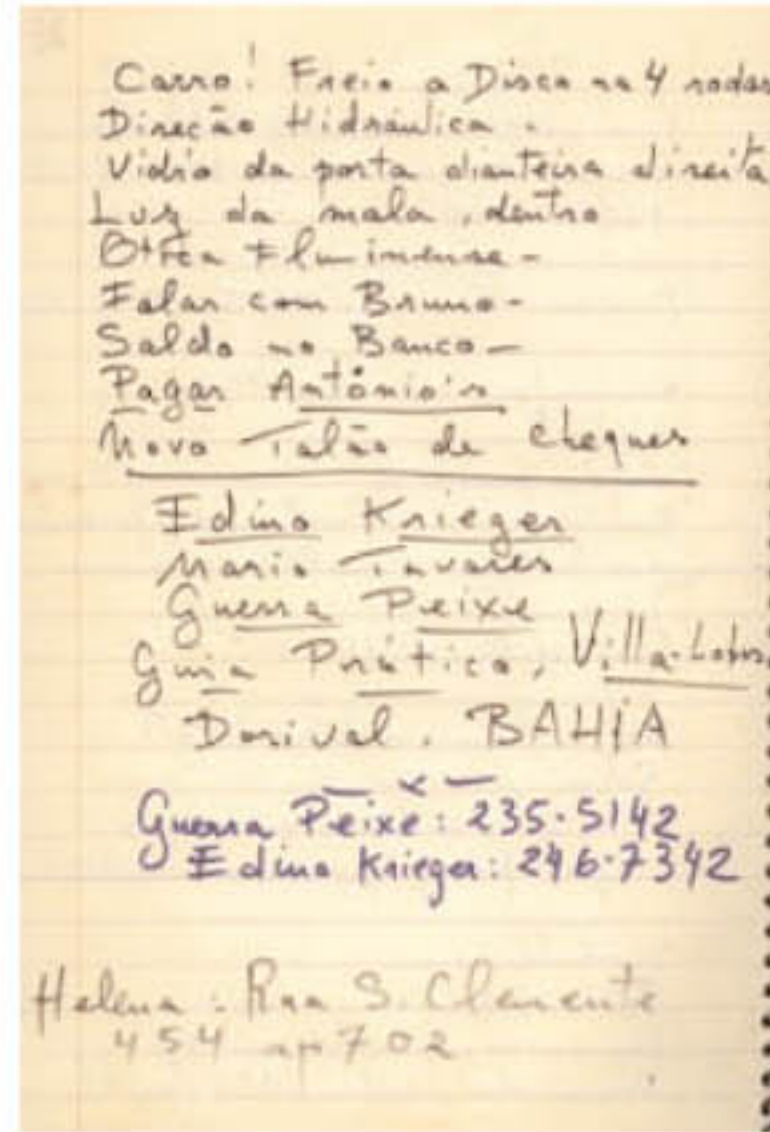 Carro! Freio a Disco na 4 rodas
Direção Hidráulica.
Vidro da porta dianteira direita
Luz da mala, dentro
Ótica Fluminense -
Falar com Bruno -
Saldo no Banco -
Pagar Antônio's
Novo Talão de cheques
Edino Krieger
Mario Tavares
Guerra Peixe
Guia Prático, Villa-Lobos
Dorival. BAHIA
Guerra Peixe: 235-5142
Edino Krieger: 246-7342
Helena: Rua S. Clemente
454 ap 702